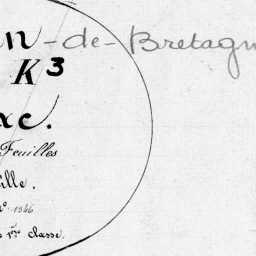 n-de-Bretagn
K³
xe.
Feuilles
ille.
1846
1re classe.